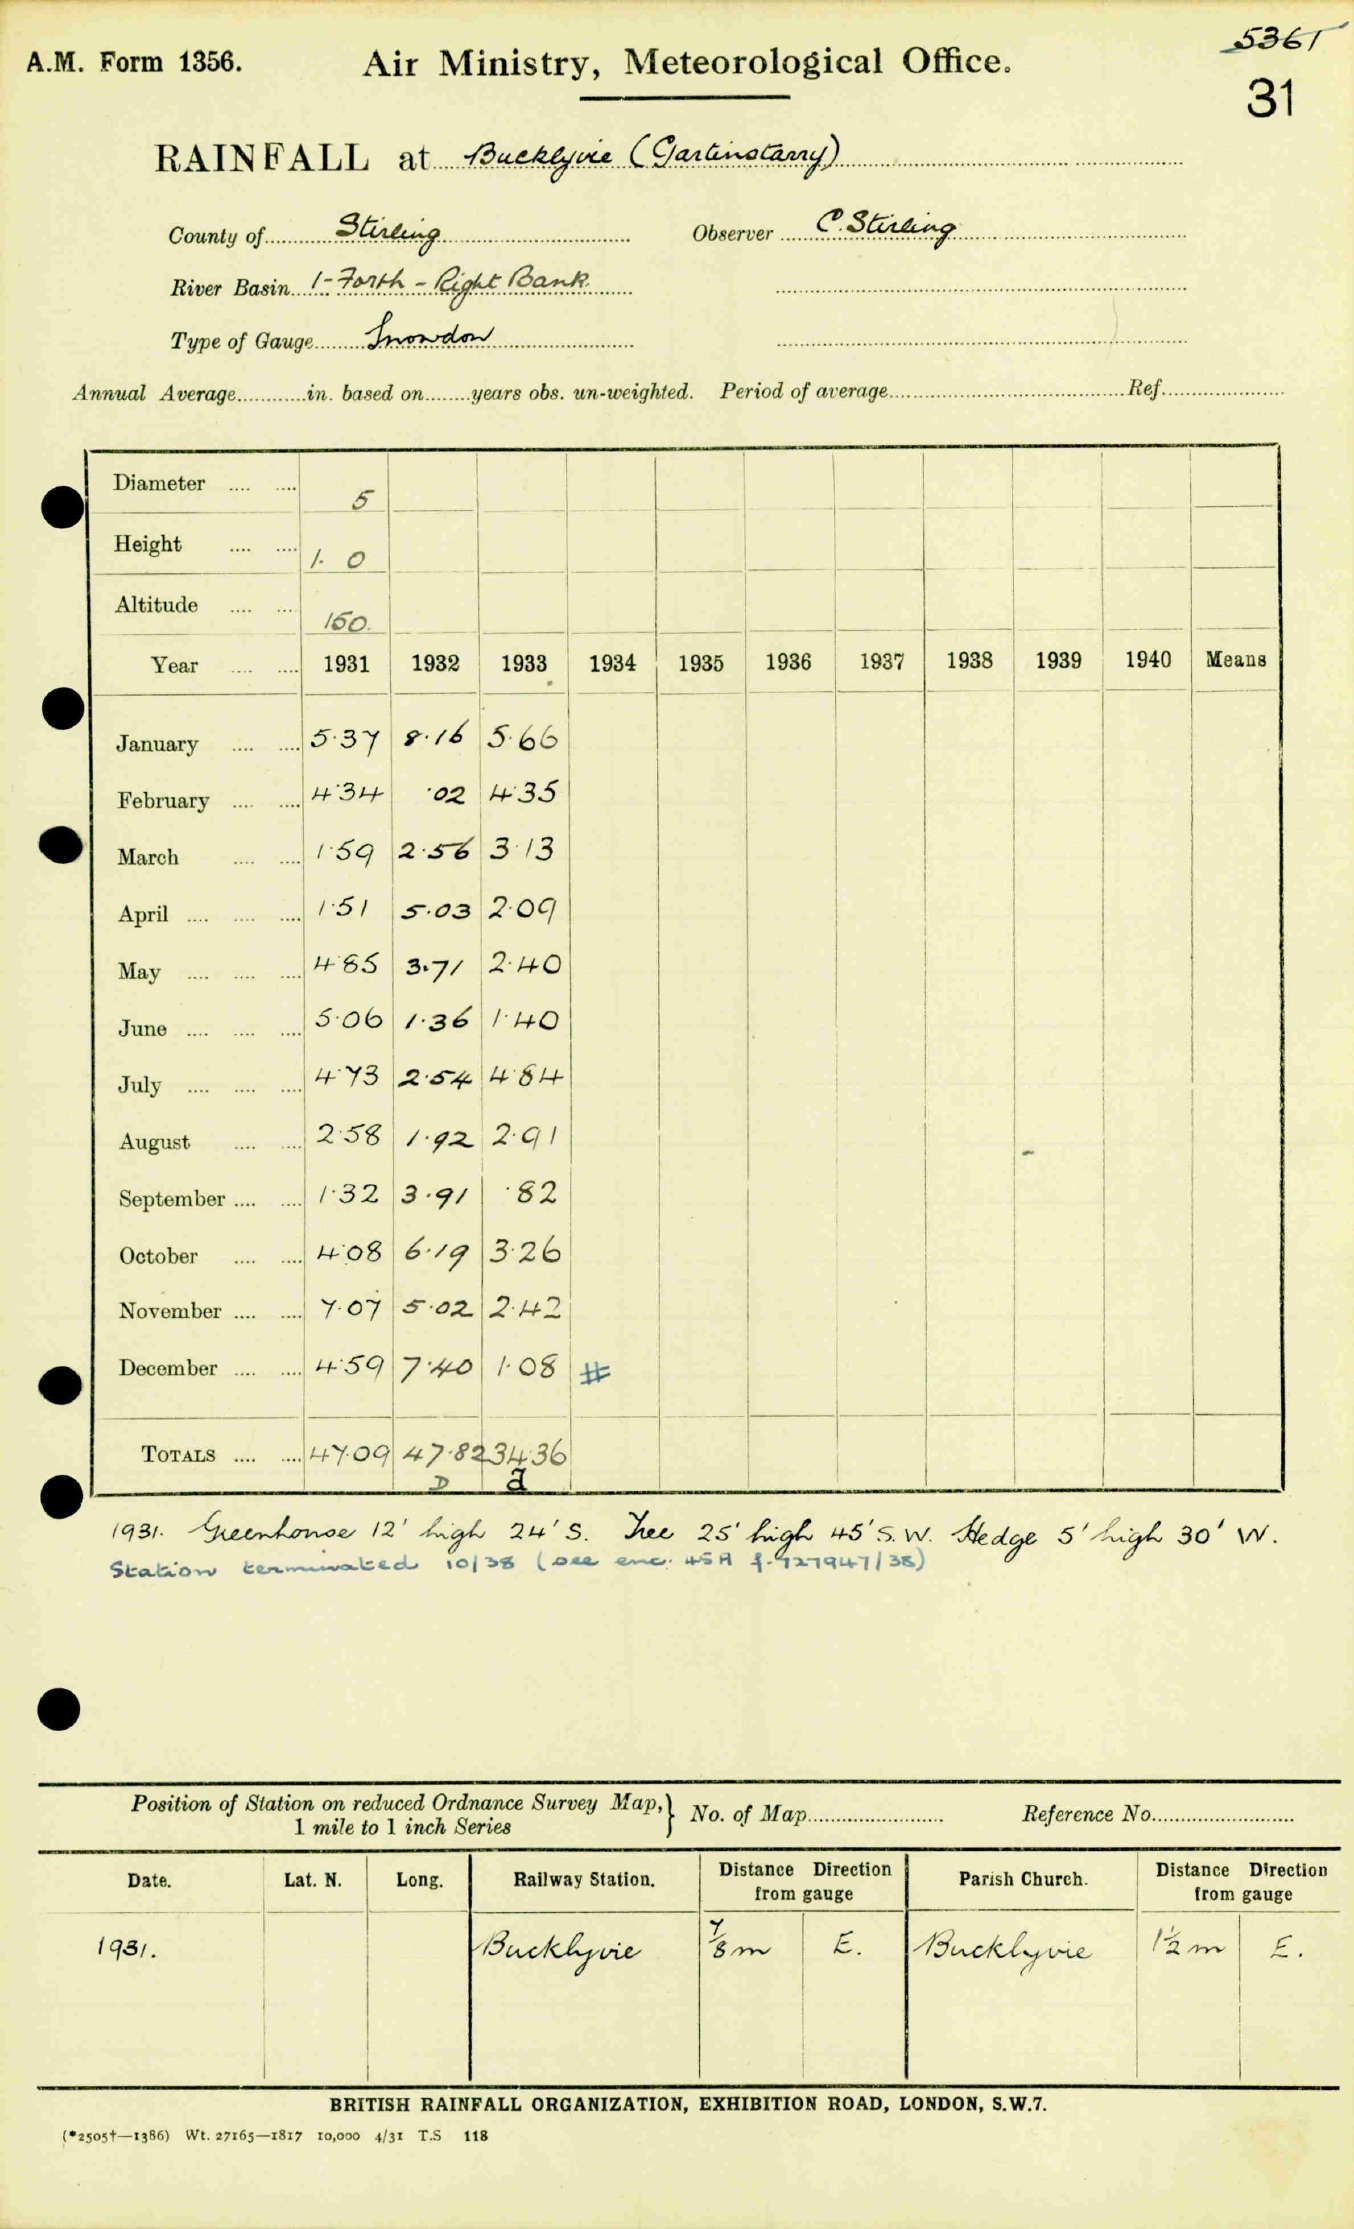 5361
A.M. Form 1356. Air Ministry, Meteorological Office.
31
RAINFALL at Bucklyvie (Gartinstarry)
County of Stirling Observer C. Stirling
River Basin 1- Forth - Right Bank
Type of Gauge Snowdon
Annual Average in. based on years obs. un-weighted. Period of average Ref.
Diameter 5
Height 1. 0
Altitude 150.
Year 1931 1932 1933 1934 1935 1936 1937 1938 1939 1940 Means
January 5.37 8.16 5.66
February 4.34 .02 4.35
March 1.59 2.56 3.13
April 1.51 5.03 2.09
May 4.85 3.71 2.40
June 5.06 1.36 1.40
July 4.73 2.54 4.84
August 2.58 1.92 2.91
September 1.32 3.91 .82
October 4.08 6.19 3.26
November 7.07 5.02 2.42
December 4.59 7.40 1.08 #
TOTALS 47.09 47.82 34.36
D a
1931. Greenhouse 12' high 24' S. Tree 25' high 45' S.W. Hedge 5' high 30' W.
Station terminated 10/38 (see enc. 45A f. 727947/38)
Position of Station on reduced Ordnance Survey Map,} No. of Map Reference No.
1 mile to 1 inch Series
Date. Lat. N. Long. Railway Station. Distance Direction from gauge Parish Church. Distance Direction from gauge
1931. Bucklyvie 7/8 m E. Bucklyvie 1½ m E.
BRITISH RAINFALL ORGANIZATION, EXHIBITION ROAD, LONDON, S.W.7.
(*2505†—1386) Wt. 27165—1817 10,000 4/31 T.S 118